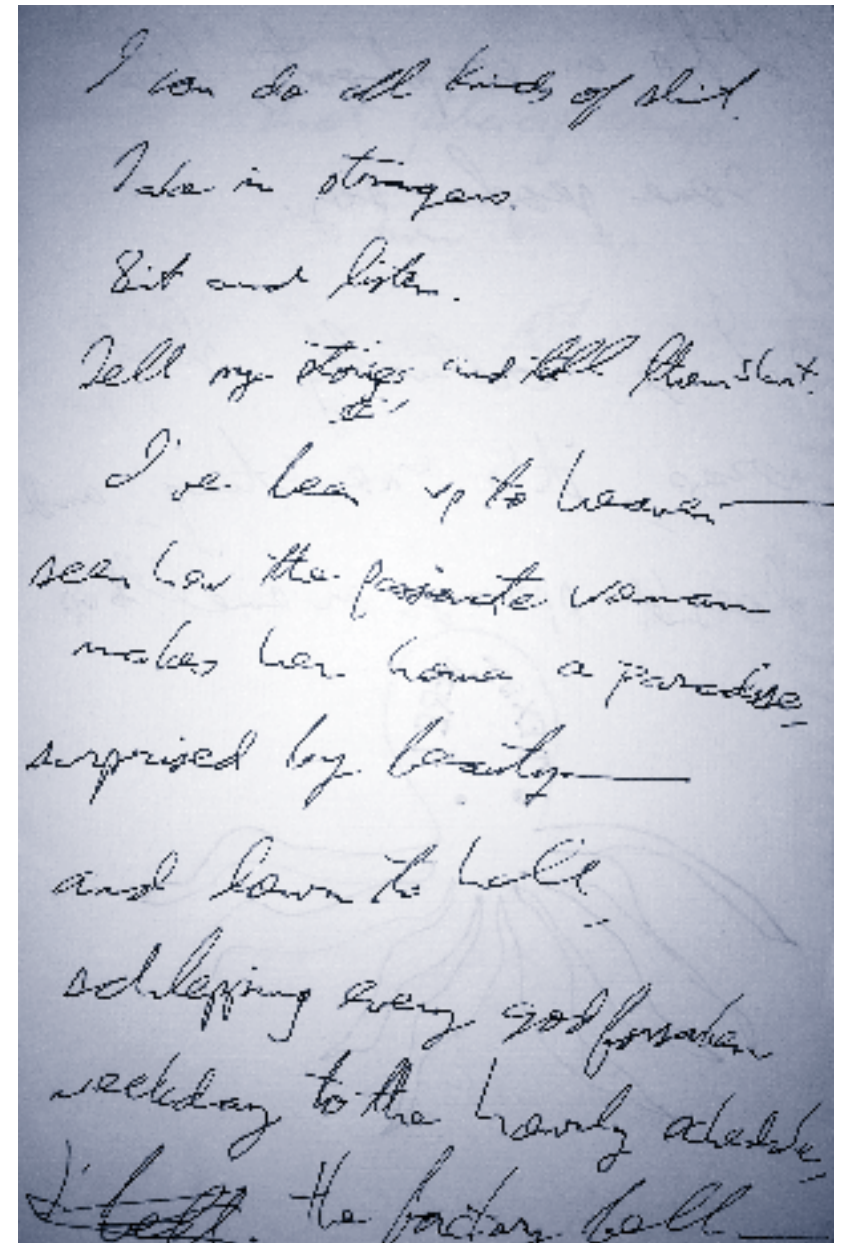 I can do all kinds of shit.
Take in strangers.
Sit and listen.
Tell my stories and tell them slant.
I've been up to heaven —
seen how the passionate woman
makes her home a paradise,
surprised by beauty —
and down to hell,
schlepping every godforsaken
weekday to the hourly schedule,
the factory bell —